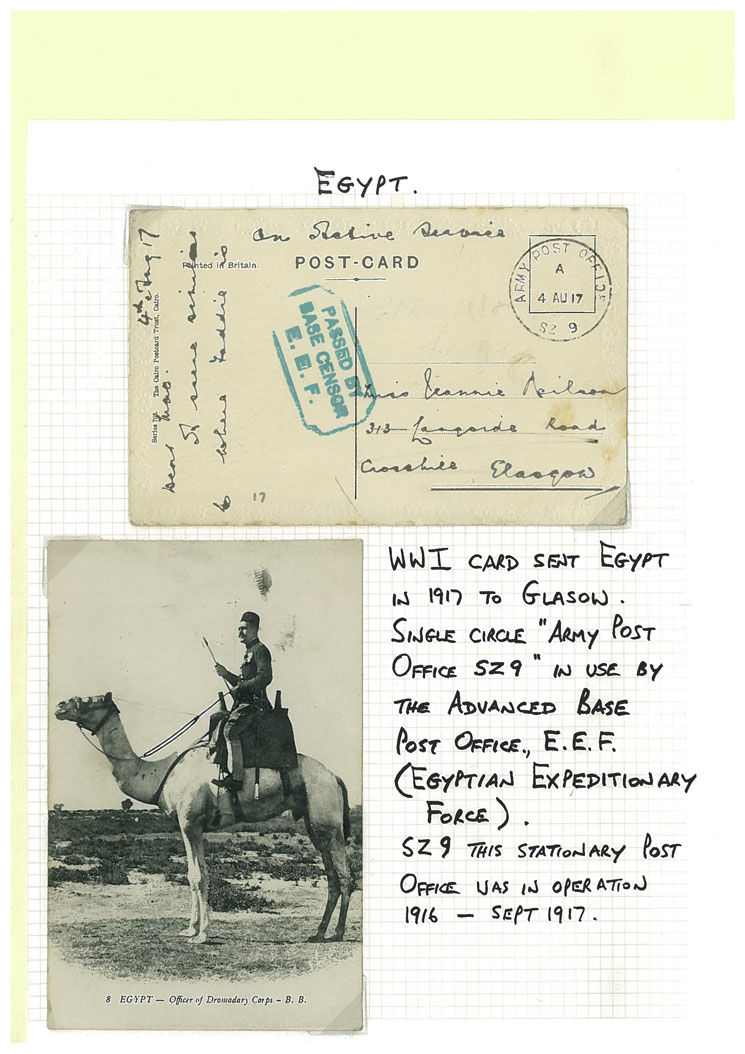 EGYPT.
On Active Service
Printed in Britain.
POST-CARD
ARMY POST OFFICE
A
4 AU 17
SZ 9
PASSED BY
BASE CENSOR
E. E. F.
Miss Jeannie Neilson
313 Langside Road
Crosshill Glasgow
The Cairo Postcard Trust, Cairo.
Series
4th Aug 17
Dear
scene similar
to where Eddie is
17
WWI CARD SENT EGYPT
IN 1917 TO GLASOW.
SINGLE CIRCLE "ARMY POST
OFFICE SZ9" IN USE BY
THE ADVANCED BASE
POST OFFICE., E.E.F.
(EGYPTIAN EXPEDITIONARY
FORCE).
SZ9 THIS STATIONARY POST
OFFICE WAS IN OPERATION
1916 — SEPT 1917.
8 EGYPT — Officer of Dromadary Corps - B. B.